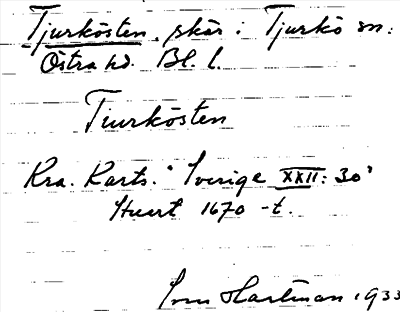 Tjurkösten, skär i Tjurkö sn.
Östra hd. Bl. l.
Tiurkösten
Kra. Karts. "Sverige XXII: 30"
1670 -t.
Hartman 1933